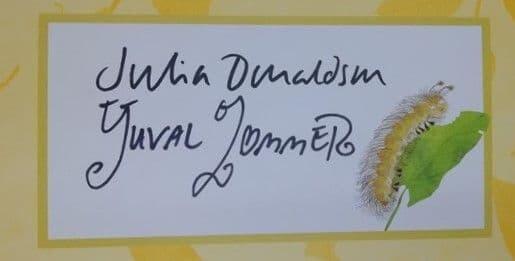 Julia Donaldson
YUVAL ZOMMER